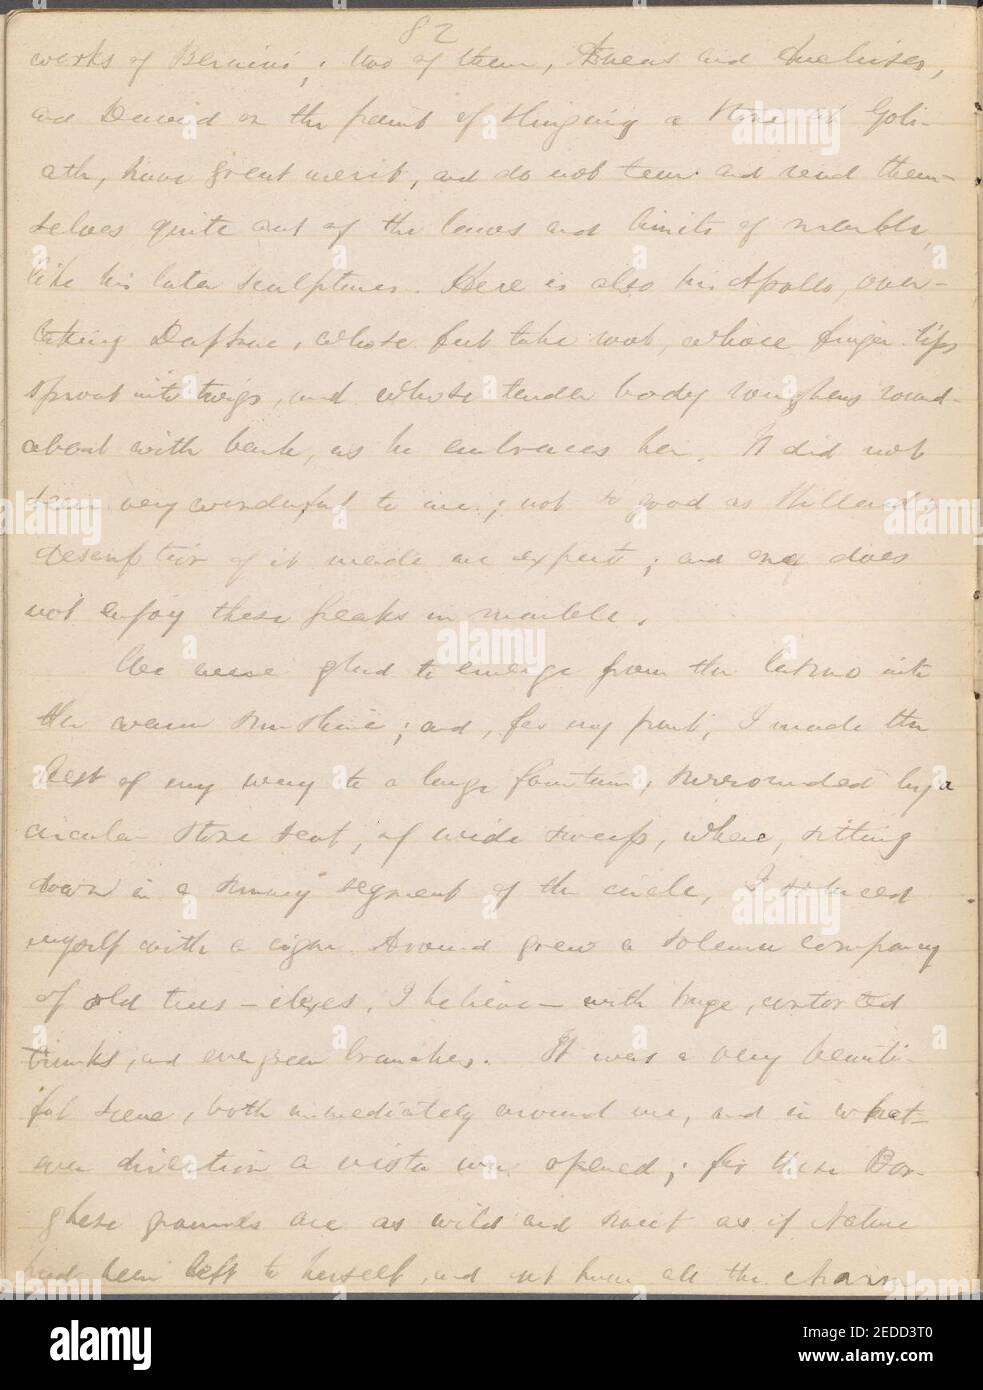 82
works of Bernini; two of them, Aneas and Anchises,
and David on the point of slinging a stone at Goli-
ath, have great merit, and do not tear and rend them-
selves quite out of the laws and limits of marble,
like his later sculptures. Here is also his Apollo, over-
taking Daphne, whose feet take root, whose finger tips
sprout into twigs, and whose tender body roughens round
about with bark, as he embraces her. It did not
seem very wonderful to me; not so good as Hillard's
description of it made me expect; and one does
not enjoy these freaks in marble.
We were glad to emerge from the Casino into
the warm sunshine; and, for my part, I made the
best of my way to a large fountain, surrounded by a
circular stone seat, of wide sweep, where, sitting
down in a sunny segment of the circle, I solaced
myself with a cigar. Around grew a solemn company
of old trees - ilexes, I believe - with huge, contorted
trunks, and evergreen branches. It was a very beauti-
ful scene, both immediately around me, and in what-
ever direction a vista was opened; for these Bor-
ghese grounds are as wild and sweet as if Nature
had been left to herself, and yet have all the charm
alamy
alamy
Image ID: 2EDD3T0
www.alamy.com